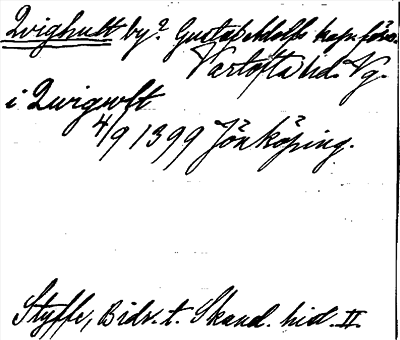 Qvighult by? Gustaf Adolfs kapnförs.
Vartofta hd. Vg.
i Qwigwlt
4/9 1399 Jönköping.
Styffe, Bidr. t. Skand. hist. II.